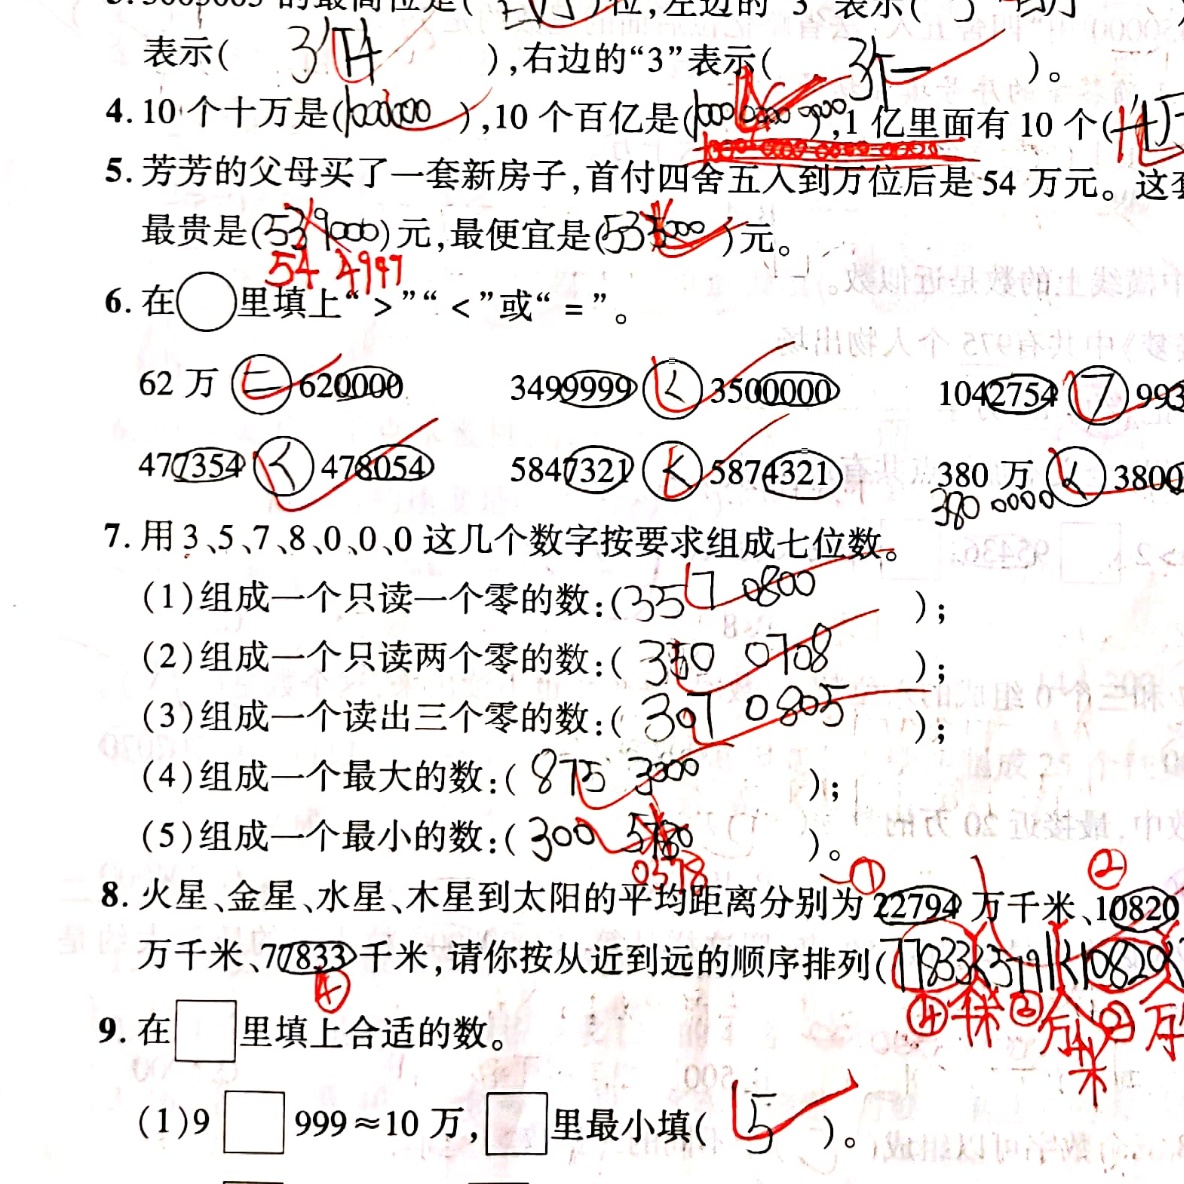 表示( 3千 ),右边的“3”表示( 3个一 )。
4. 10 个十万是(1000000),10 个百亿是( ),1 亿里面有 10 个(
5. 芳芳的父母买了一套新房子,首付四舍五入到万位后是 54 万元。这
最贵是(539000)元,最便宜是( )元。
54 4999
6. 在○里填上“>”“<”或“=”。
62 万 = 620000 3499999 < 3500000 1042754 > 993
477354 < 478054 5847321 < 5874321 380 万 < 3800
380 0000
7. 用 3、5、7、8、0、0、0 这几个数字按要求组成七位数。
(1)组成一个只读一个零的数:(357 0800 );
(2)组成一个只读两个零的数:(350 0708 );
(3)组成一个读出三个零的数:(307 0805 );
(4)组成一个最大的数:(875 3000 );
(5)组成一个最小的数:(300 5780 )。
0578
① ②
8. 火星、金星、水星、木星到太阳的平均距离分别为 22794 万千米、10820
万千米、77833 千米,请你按从近到远的顺序排列(77833< <10820<
④ ④ 千米 ③ 万千米 ②
9. 在□里填上合适的数。
(1)9□999≈10 万,□里最小填( 5 )。